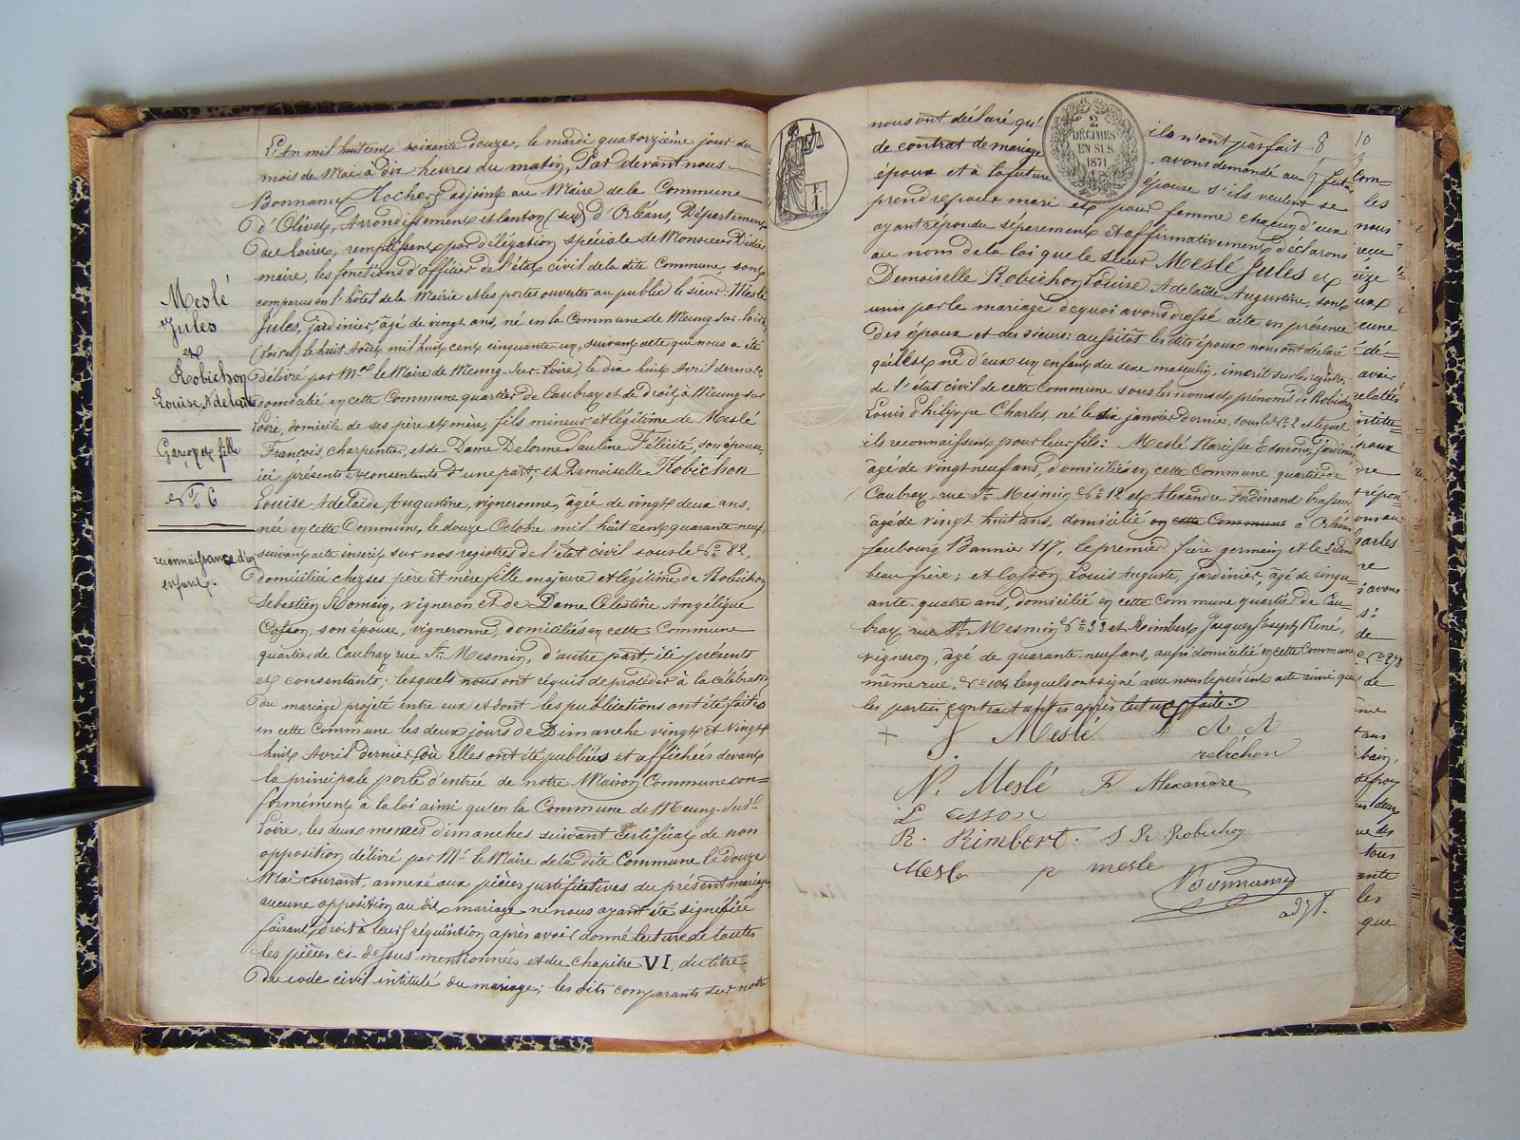 L'An mil huit cent soixante douze, le mardi quatorzième jour du
mois de Mai à dix heures du matin, Par devant nous
Bonnamy Rocher, adjoint au Maire de la Commune
d'Olivet, Arrondissement et canton (sud) d'Orléans, Département
du Loiret, remplissant par délégation spéciale de Monsieur
maire, les fonctions d'officier de l'état civil de la dite Commune, sont
comparus en l'hôtel de la Mairie et les portes ouvertes au public le sieur Meslé
Jules, jardinier, âgé de vingt ans, né en la Commune de Meung-sur-Loire
(Loiret) le huit Août mil huit cent cinquante un, suivant acte qui nous a été
délivré par Mr le Maire de Meung-sur-Loire, le dix huit Avril dernier
domicilié en cette Commune quartier de Caubray et de droit à Meung-sur
Loire, domicile de ses père et mère, fils mineur et légitime de Meslé
François, charpentier, et de Dame Delorme Pauline Félicité, son épouse,
ici présents et consentants d'une part; et Demoiselle Robichon
Louise Adelaïde Augustine, vigneronne, âgée de vingt deux ans,
née en cette Commune, le douze Octobre mil huit cent quarante neuf,
suivant acte inscrit sur nos registres de l'état civil sous le No 82,
domiciliée chez ses père et mère fille majeure et légitime de Robichon
Sebastien Romain, vigneron et de Dame Célestine Angélique
Cosson, son épouse, vigneronne, domiciliés en cette Commune
quartier de Caubray rue St Mesmin, d'autre part, ici présents
et consentants; lesquels nous ont requis de procéder à la célébration
du mariage projeté entre eux et dont les publications ont été faites
en cette Commune les deux jours de Dimanche vingt et vingt
huit Avril dernier, où elles ont été publiées et affichées devant
la principale porte d'entrée de notre Maison Commune con=
formément à la loi ainsi qu'en la Commune de Meung-sur-
Loire, les deux mêmes dimanches suivant Certificat de non
opposition délivré par Mr le Maire de la dite Commune le douze
Mai courant, annexé aux pièces justificatives du présent mariage
aucune opposition au dit mariage ne nous ayant été signifiée
faisant droit à leur réquisition après avoir donné lecture de toutes
les pièces ci-dessus mentionnées et du chapitre VI, du titre
du code civil intitulé du mariage; les dits comparants sur notre
Meslé
Jules
et
Robichon
Louise Adelaïde
Garçon et fille
No 6
reconnaissance d'un
enfant.
2
DÉCIMES
EN SUS
1871
nous ont déclaré qu'ils n'ont pas fait
de contrat de mariage, avons demandé au futur
époux et à la future épouse s'ils veulent se
prendre pour mari et pour femme chacun d'eux
ayant répondu séparément et affirmativement déclarons
au nom de la loi que le sieur Meslé Jules et
Demoiselle Robichon, Louise, Adelaïde Augustine, sont
unis par le mariage de quoi avons dressé acte en présence
des époux et des sieurs: aussitôt les dits époux nous ont déclaré
qu'il est né d'eux un enfant du sexe masculin, inscrit sur les registres
de l'état civil de cette commune sous les noms et prénoms de Robichon
Louis Philippe Charles, né le six janvier dernier, sous le No 2 et lequel
ils reconnaissent pour leur fils: Meslé Narisse Edmond, Jardinier
âgé de vingt neuf ans, domicilié en cette Commune, quartier de
Caubray, rue St Mesmin No 12 et Alexandre Ferdinand
âgé de vingt huit ans, domicilié en cette Commune à Orléans
faubourg Bannier 117, le premier frère germain et le
beau frère; et Cosson, Louis Auguste, jardinier, âgé de cinqu=
ante quatre ans, domicilié en cette Commune quartier de Cau=
bray rue St Mesmin No 33 et Reimbert Jacques Joseph René,
vigneron, âgé de quarante neuf ans, aussi domicilié en cette Commune
même rue, No 104 lesquels ont signé avec nous le présent acte ainsi que
les parties contractantes après lecture faite.
J Meslé A R
robichon
N. Meslé F. Alexandre
L Cosson
R. Rimbert. S R Robichon
Meslé p mesle
Bonnamy
adjt.